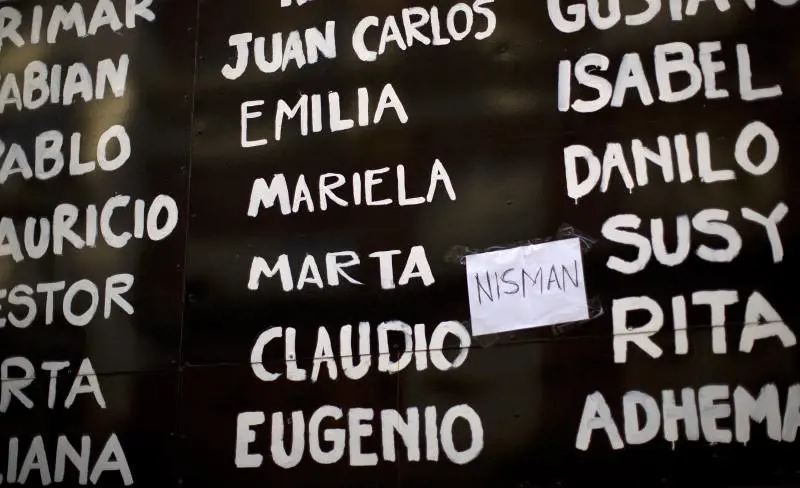 RIMAR
ABIAN
ABLO
AURICIO
ESTOR
RTA
LIANA
JUAN CARLOS
EMILIA
MARIELA
MARTA
CLAUDIO
EUGENIO
NISMAN
GUSTAVO
ISABEL
DANILO
SUSY
RITA
ADHEMA